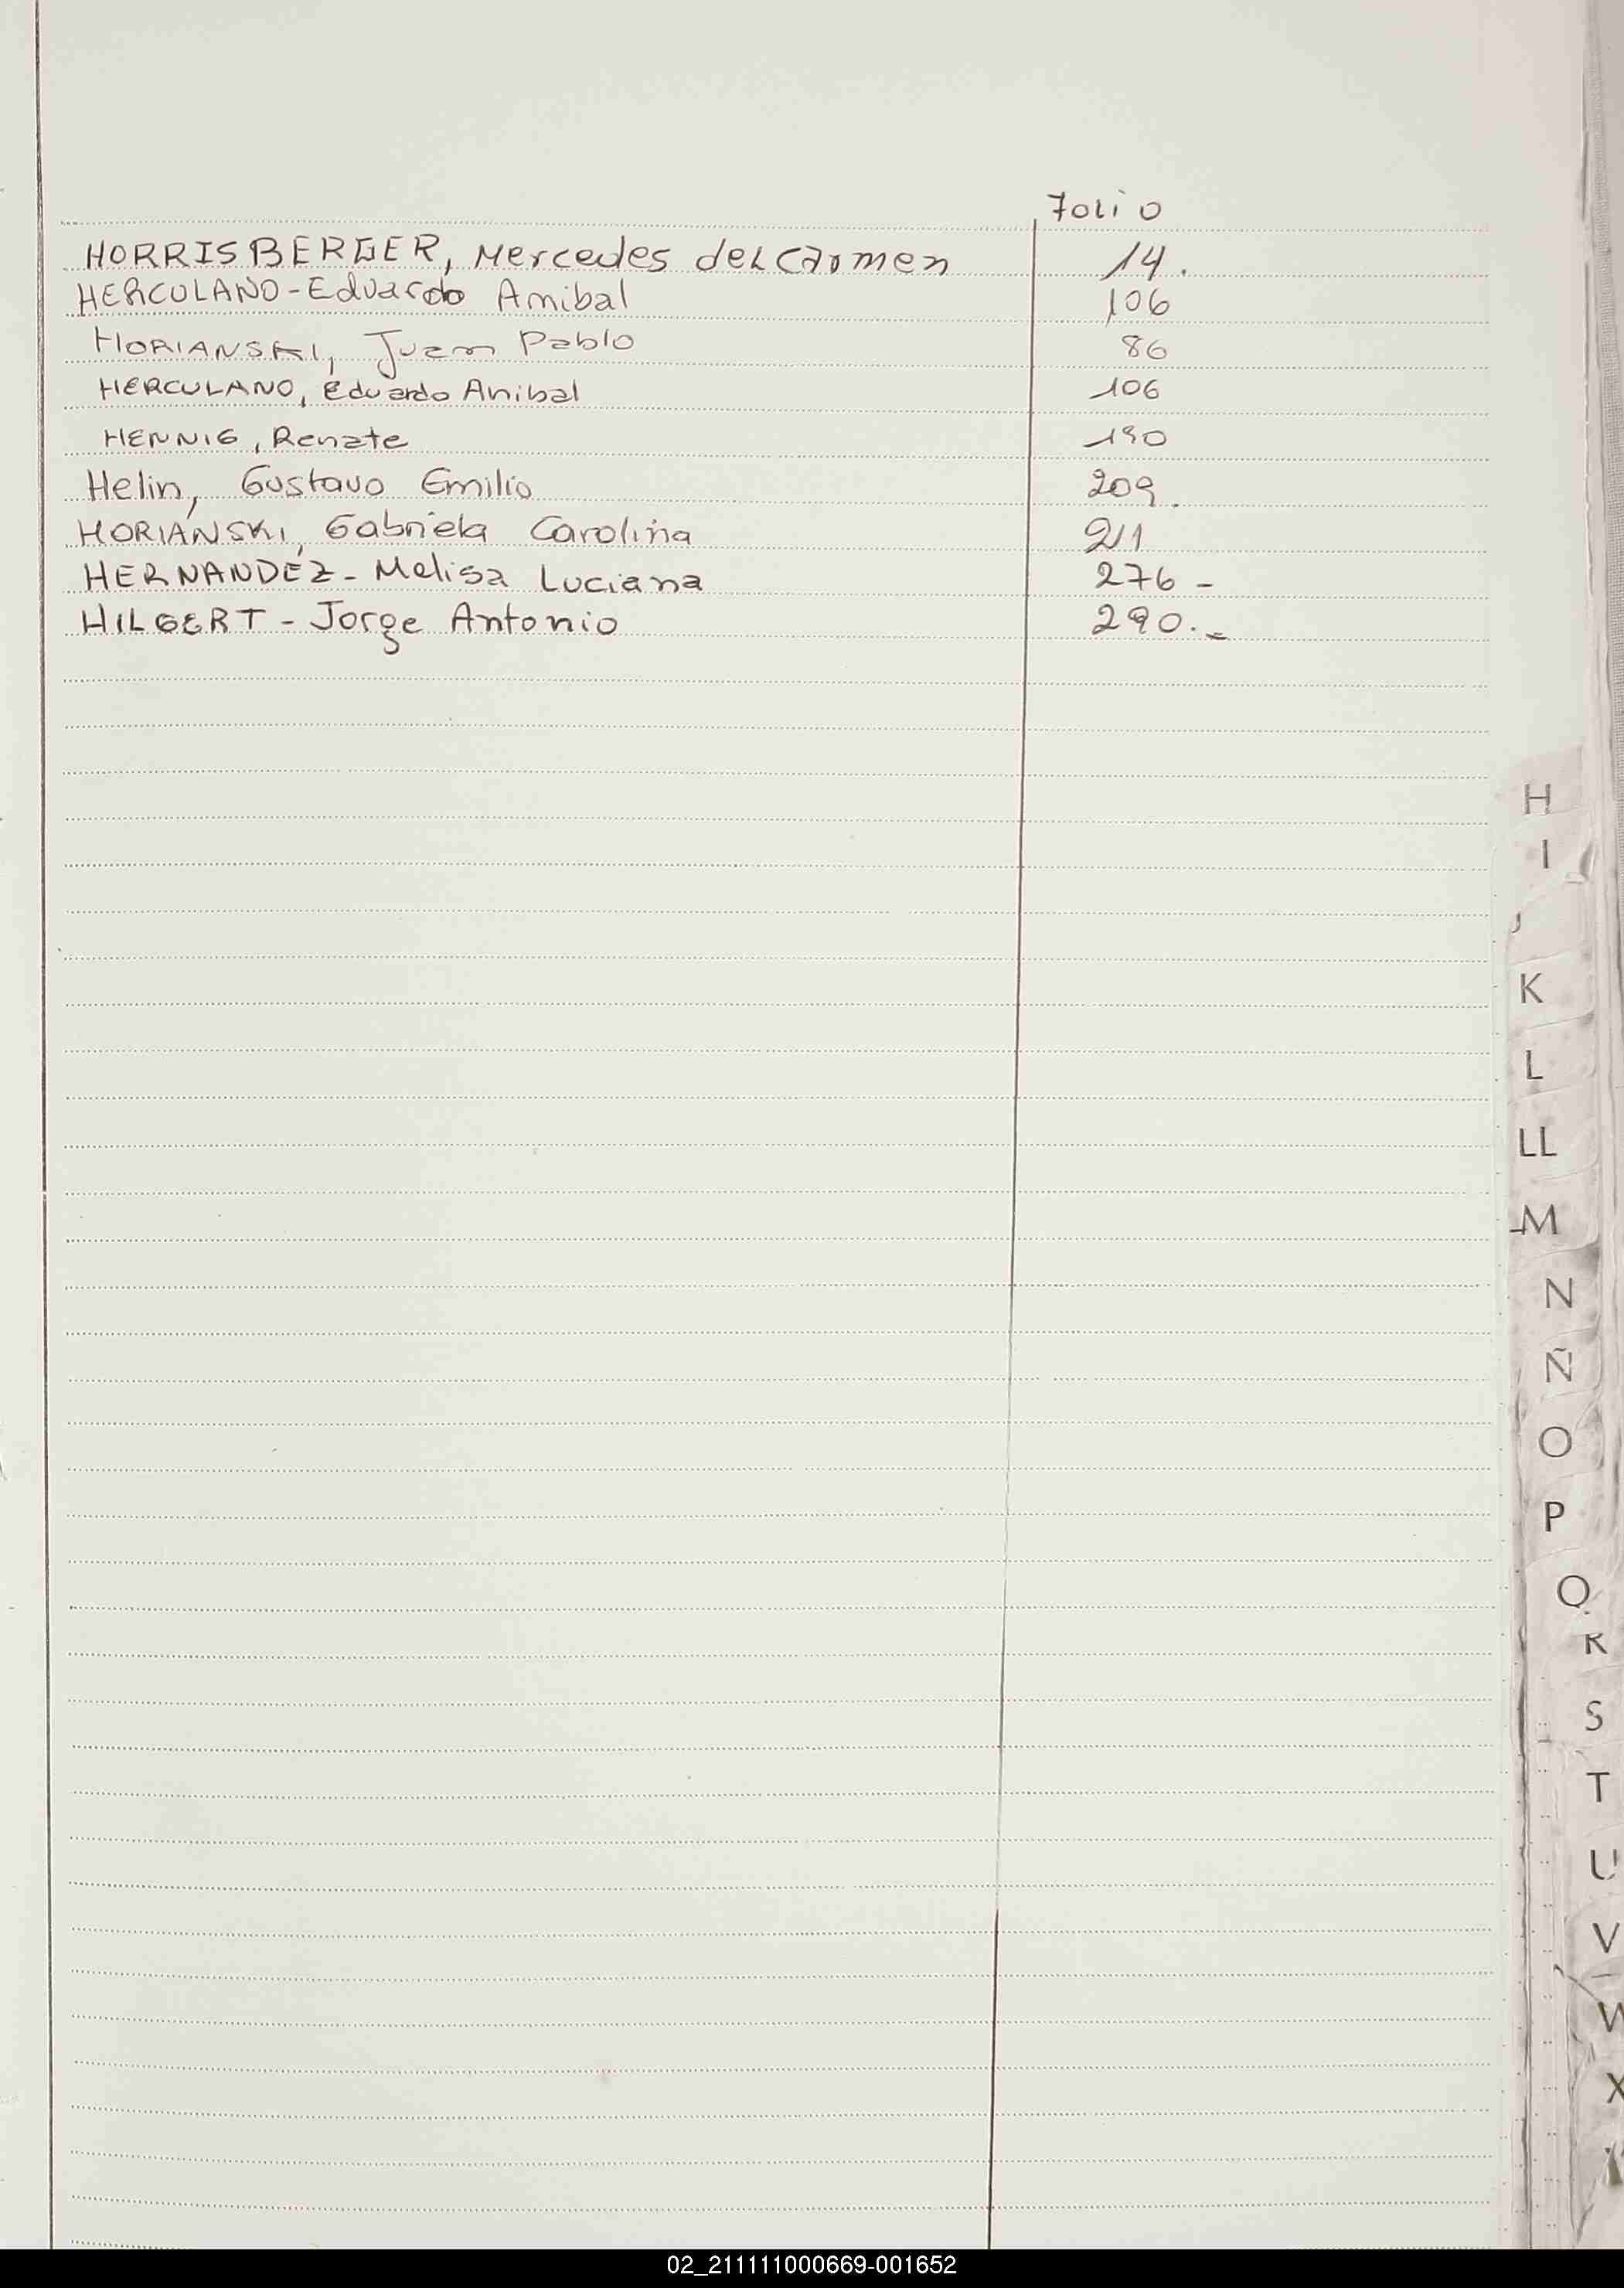 Folio
HORRISBERGER, Mercedes del Carmen 14.
HERCULANO - Eduardo Anibal 106
HORIANSKI, Juan Pablo 86
HERCULANO, Eduardo Anibal 106
HENNIG, Renate 190
Helin, Gustavo Emilio 209.
HORIANSKI, Gabriela Carolina 211
HERNANDEZ - Melisa Luciana 276 -
HILGERT - Jorge Antonio 290.-
H
I
J
K
L
LL
M
N
Ñ
O
P
Q
R
S
T
U
V
W
X
02_211111000669-001652